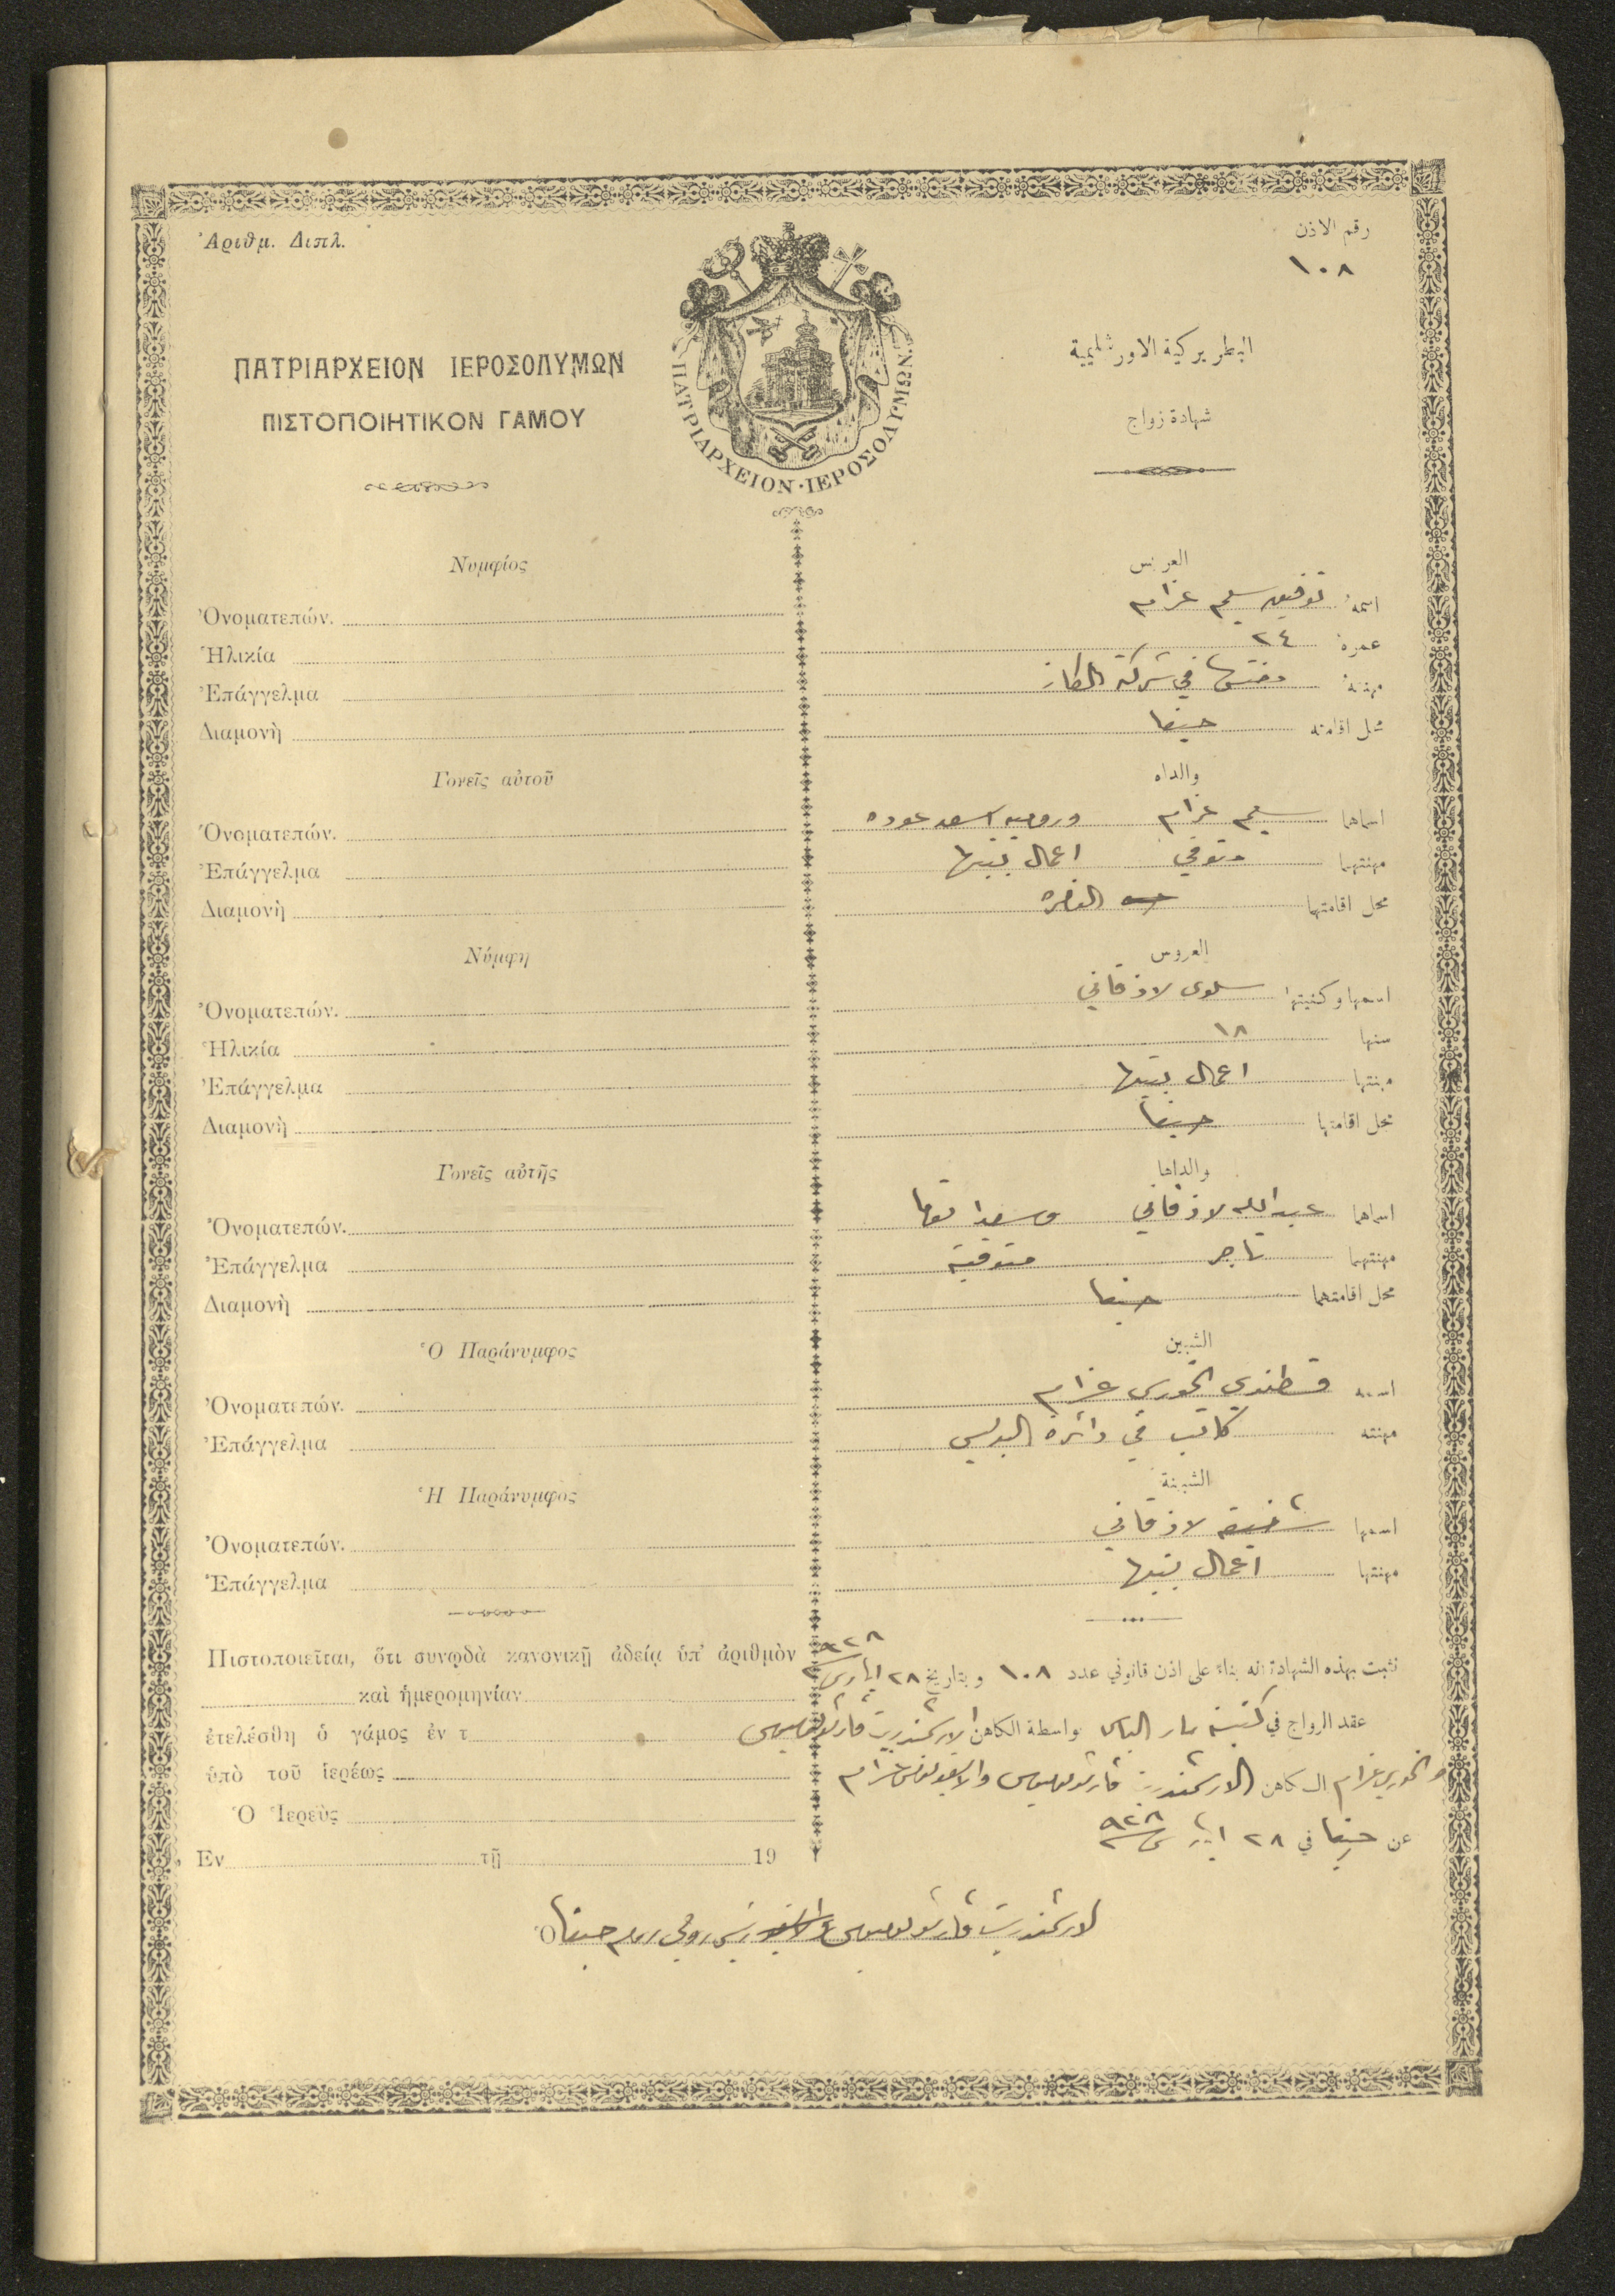 Ἀριθμ. Διπλ.
رقم الاذن
١٠٨
ΠΑΤΡΙΑΡΧΕΙΟΝ ΙΕΡΟΣΟΛΥΜΩΝ
ΠΙΣΤΟΠΟΙΗΤΙΚΟΝ ΓΑΜΟΥ
ΠΑΤΡΙΑΡΧΕΙΟΝ·ΙΕΡΟΣΟΛΥΜΩΝ
البطريركية الاورشليمية
شهادة زواج
Νυμφίος
Ὀνοματεπών.
Ἡλικία
Ἐπάγγελμα
Διαμονὴ
Γονεῖς αὐτοῦ
Ὀνοματεπών.
Ἐπάγγελμα
Διαμονὴ
Νύμφη
Ὀνοματεπών.
Ἡλικία
Ἐπάγγελμα
Διαμονὴ
Γονεῖς αὐτῆς
Ὀνοματεπών.
Ἐπάγγελμα
Διαμονὴ
Ὁ Παράνυμφος
Ὀνοματεπών.
Ἐπάγγελμα
Ἡ Παράνυμφος
Ὀνοματεπών.
Ἐπάγγελμα
Πιστοποιεῖται, ὅτι συνῳδὰ κανονικῇ ἀδείᾳ ὑπ' ἀριθμὸν
καὶ ἡμερομηνίαν
ἐτελέσθη ὁ γάμος ἐν τ
ὑπὸ τοῦ ἱερέως
Ὁ Ἱερεὺς
Ἐν τῇ 19
العريس
اسمه توفيق سليم عزام
عمره ٢٤
مهنته في شركة الكاز
محل اقامته حيفا
والداه
اسماهما سليم عزام اسعد عوده
مهنتهما متوفي اعمال بيتها
محل اقامتهما الناصره
العروس
اسمها وكنيتها سلوى لاذقاني
سنها ١٨
مهنتها اعمال بيتها
محل اقامتها حيفا
والداها
اسماهما عبدالله لاذقاني
مهنتهما تاجر متوفية
محل اقامتهما حيفا
الشبين
اسمه قسطندي الخوري عزام
مهنته كاتب في دائرة البوليس
الشبينة
اسمها لاذقاني
مهنتها اعمال بيتها
نثبت بهذه الشهادة انه بناء على اذن قانوني عدد ١٠٨ وبتاريخ ٢٨ ايار ٩٢٨
عقد الزواج في كنيسة مار الياس بواسطة الكاهن الارشمندريت
والخوري عزام الكاهن الارشمندريت عزام
عن حيفا في ٢٨ ايار ٩٢٨
الارشمندريت حيفا